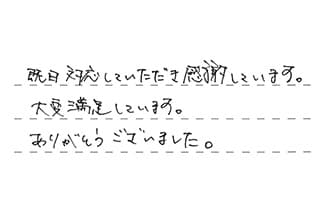 既日対応していただき感謝しています。
大変満足しています。
ありがとうございました。